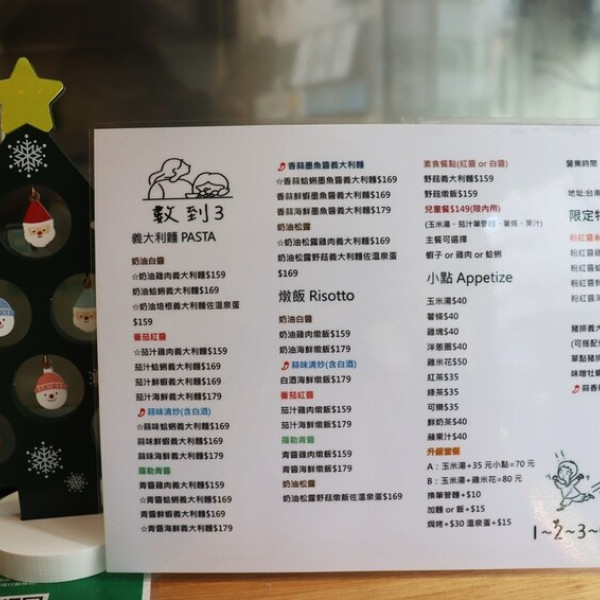 數到3
義大利麵 PASTA
奶油白醬
☆奶油雞肉義大利麵$159
奶油蛤蜊義大利麵$169
☆奶油培根義大利麵佐溫泉蛋
$159
番茄紅醬
☆茄汁雞肉義大利麵$159
茄汁蛤蜊義大利麵$169
茄汁鮮蝦義大利麵$169
茄汁海鮮義大利麵$179
蒜味清炒(含白酒)
☆蒜味蛤蜊義大利麵$169
蒜味鮮蝦義大利麵$169
蒜味海鮮義大利麵$179
羅勒青醬
青醬雞肉義大利麵$159
☆青醬蛤蜊義大利麵$169
青醬鮮蝦義大利麵$169
☆青醬海鮮義大利麵$179
香蒜墨魚醬義大利麵
☆香蒜蛤蜊墨魚醬義大利麵$169
香蒜鮮蝦墨魚醬義大利麵$169
香蒜海鮮墨魚醬義大利麵$179
奶油松露
☆奶油松露雞肉義大利麵$169
奶油松露野菇義大利麵佐溫泉蛋
$169
燉飯 Risotto
奶油白醬
奶油雞肉燉飯$159
奶油海鮮燉飯$179
蒜味清炒(含白酒)
白酒海鮮燉飯$179
番茄紅醬
茄汁雞肉燉飯$159
茄汁海鮮燉飯$179
羅勒青醬
青醬雞肉燉飯$159
青醬海鮮燉飯$179
奶油松露
奶油松露野菇燉飯佐溫泉蛋$169
素食餐點(紅醬 or 白醬)
野菇義大利麵$159
野菇燉飯$159
兒童餐$149(限內用)
(玉米湯、茄汁筆管麵、薯條、果汁)
主餐可選擇
蝦子 or 雞肉 or 蛤蜊
小點 Appetize
玉米湯$40
薯條$40
雞塊$40
洋蔥圈$40
雞米花$50
紅茶$35
綠茶$35
可樂$35
鮮奶茶$40
蘋果汁$40
升級套餐
A：玉米湯+35 元小點=70 元
B：玉米湯+雞米花=80 元
換筆管麵+$10
加麵 or 飯+$15
焗烤+$30 溫泉蛋+$15
營業時間
地址:台南
限定
粉紅醬
粉紅醬
粉紅醬
粉紅醬
粉紅醬
豬排義大
(可搭配
單點豬排
味噌牡蠣
蒜香
1~2~3~